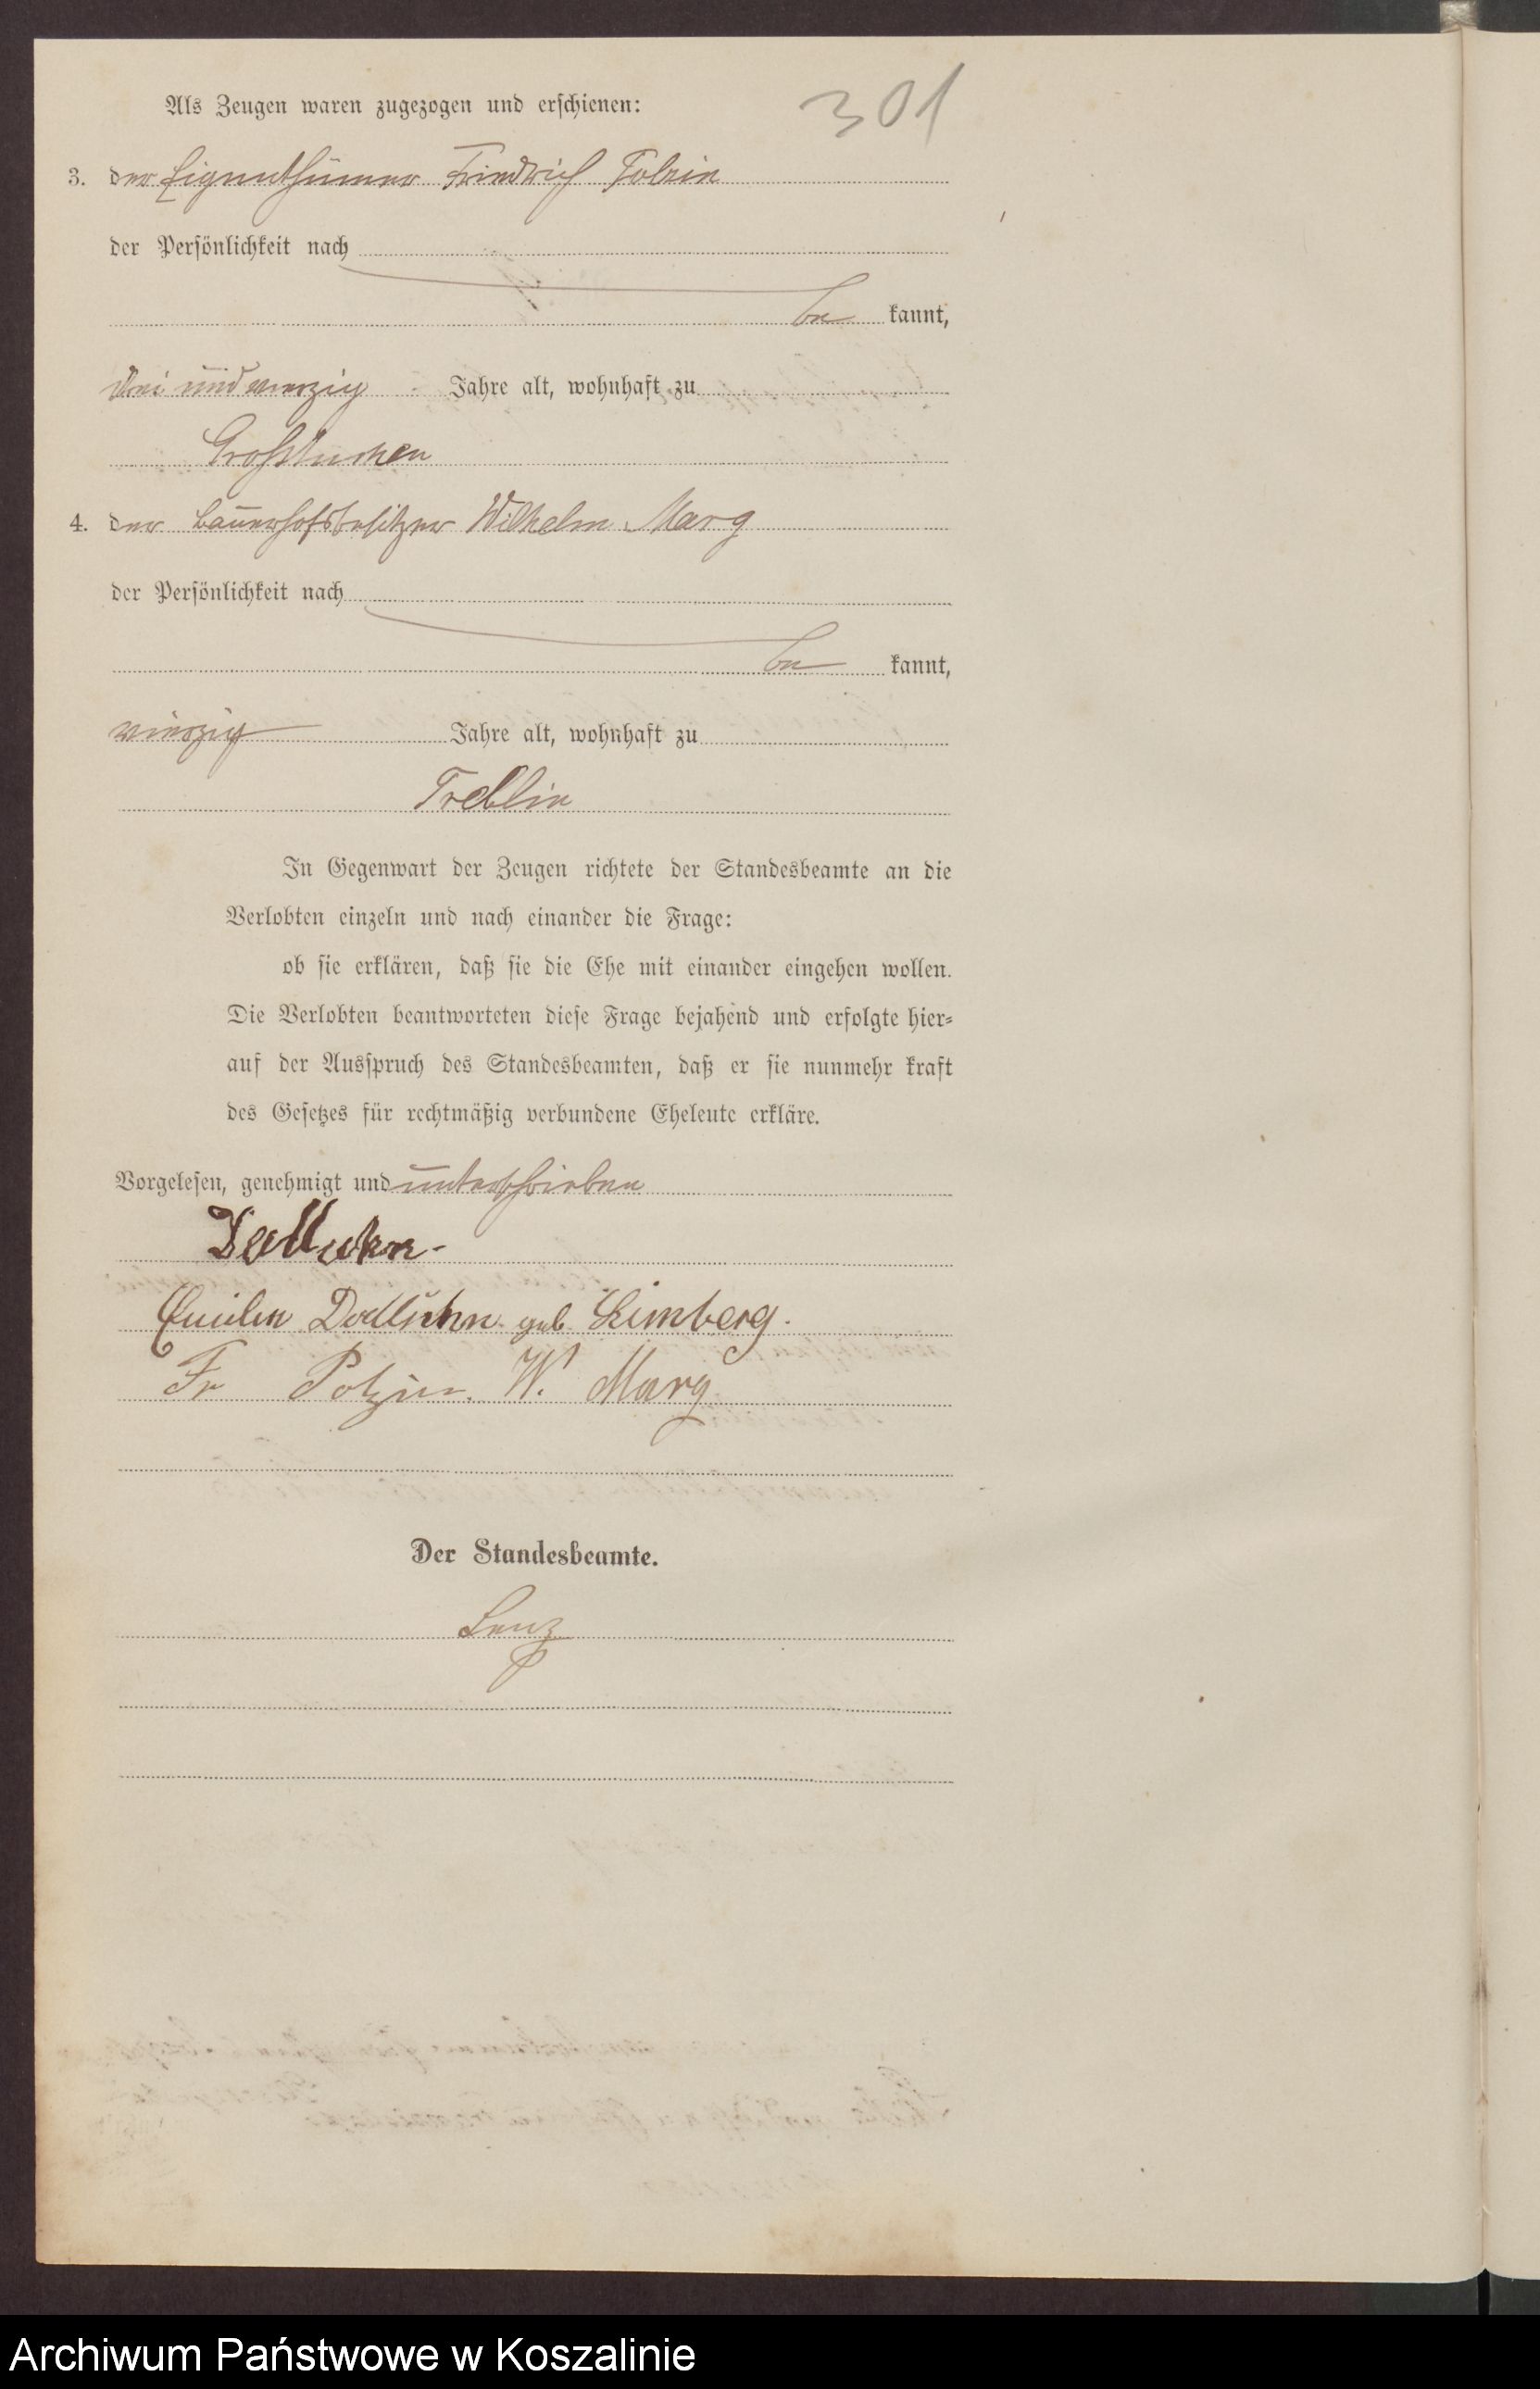 301
Als Zeugen waren zugezogen und erschienen:
3. der Eigenthümer Friedrich Polzin
der Persönlichkeit nach
be kannt,
drei und vierzig Jahre alt, wohnhaft zu
Großtuchen
4. der Bauerhofsbesitzer Wilhelm Marg
der Persönlichkeit nach
be kannt,
vierzig Jahre alt, wohnhaft zu
Treblin
In Gegenwart der Zeugen richtete der Standesbeamte an die
Verlobten einzeln und nach einander die Frage:
ob sie erklären, daß sie die Ehe mit einander eingehen wollen.
Die Verlobten beantworteten diese Frage bejahend und erfolgte hier=
auf der Ausspruch des Standesbeamten, daß er sie nunmehr kraft
des Gesetzes für rechtmäßig verbundene Eheleute erkläre.
Vorgelesen, genehmigt und unterschrieben
geb. Limberg.
Fr Polzin. W. Marg
Der Standesbeamte.
Lenz
Archiwum Państwowe w Koszalinie